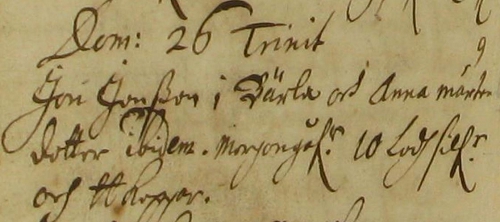 Dom: 26 Trinit
Jon Jonsson i Bärla och Anna mårtens
dotter ibidem. Morgongåf.r 10 Lod silf.r
och ℔ koppar.